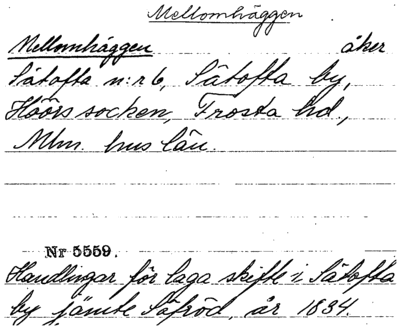 Mellomhäggen
Mellomhäggen åker
Sätofta n:r 6, Sätofta by,
Höörs socken, Frosta hd,
Mlm. hus län.
Nr 5559.
Handlingar för laga skifte i Sätofta
by jämte Säfröd, år 1834.